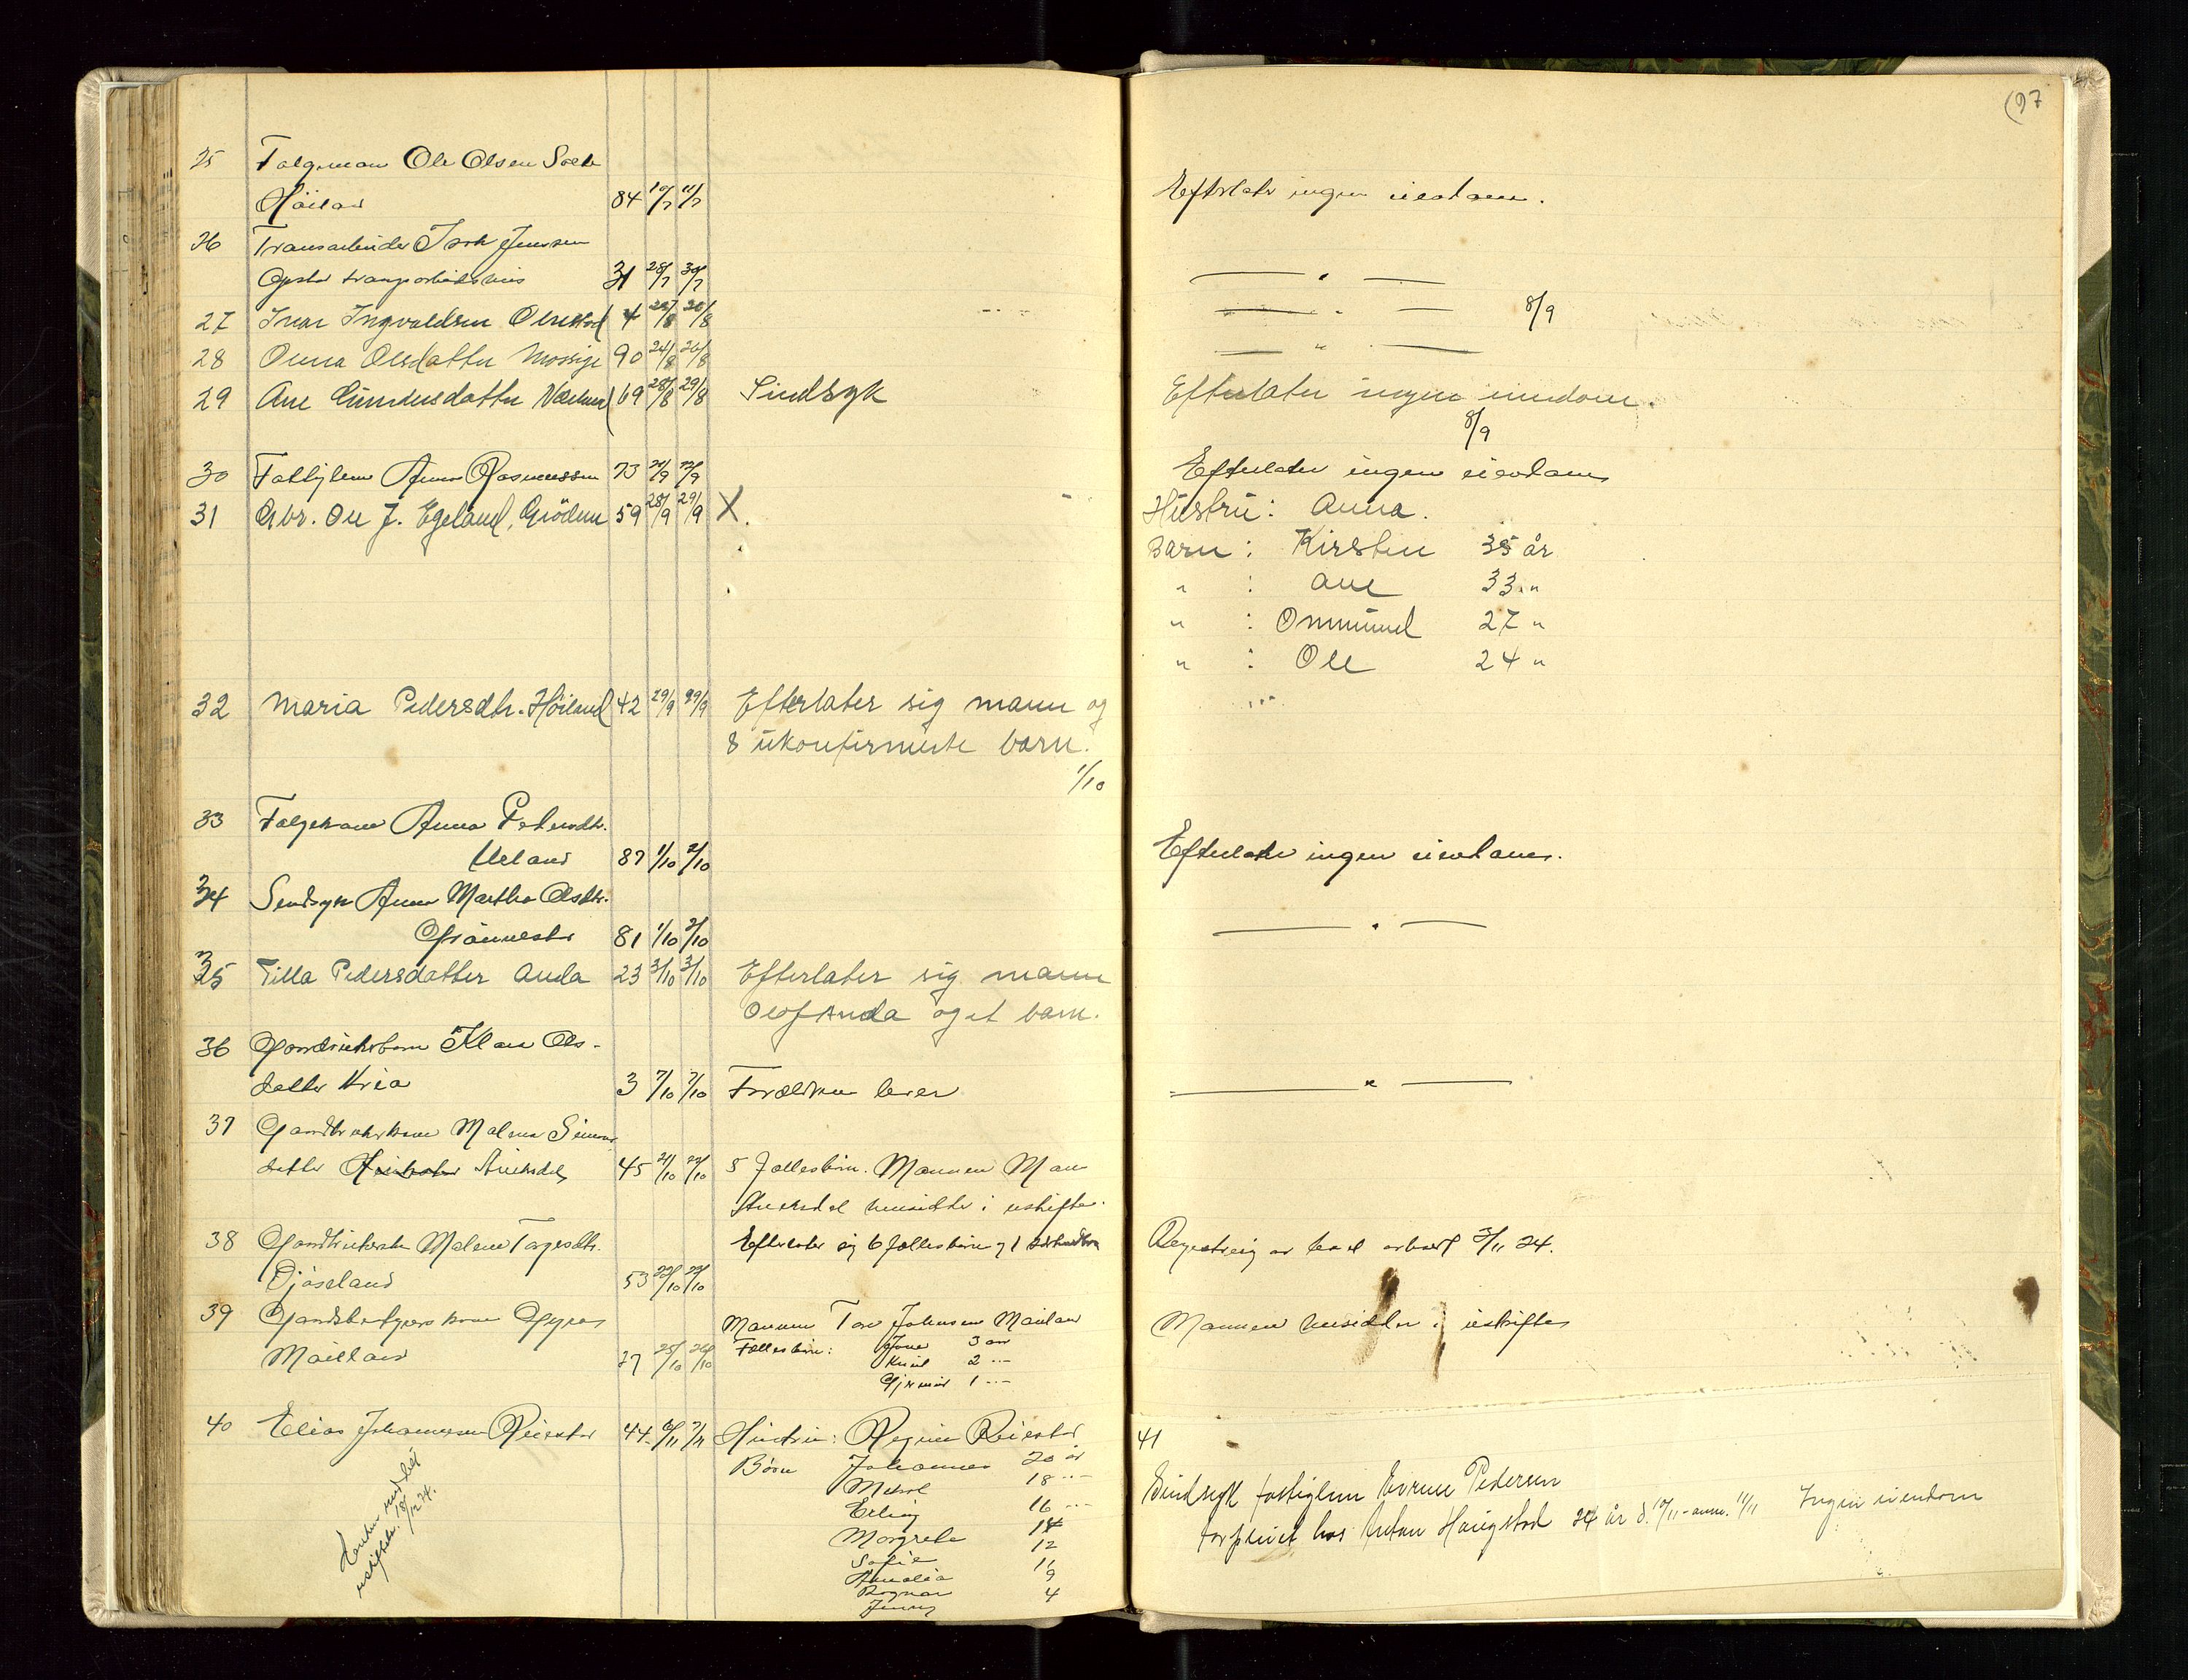 (97
25 Folgeman Ole Olsen Sæle
Höiland 84 10/7 11/7 Efterlater ingen eiendom.
26 Transarbeider Isak Jensen
Opstad tvangsarbeidshus 31 28/7 30/7 — " —
27 Ivar Ingvaldsen Olnestad 4 20/8 20/8 — " — 8/9
28 Onna Olsdatter Mossige 90 24/8 26/8 — " —
29 Ane Gundersdatter 69 28/8 29/8 Sindsyk Efterlater ingen eiendom.
8/9
30 Anna Rasmussen 73 /9 /9 Efterlater ingen eiendom
31 Gbr. Ole J. Egeland, Grödem 59 28/9 29/9 X. Hustru: Anna.
Barn: Kirsten 35 år
" : Ane 33 "
" : Ommund 27 "
" : Ole 24 "
32 Maria Pedersdtr. Höiland 42 29/9 29/9 Efterlater sig mann og
8 ukonfirmerte barn.
1/10
33 Folgekone Anna Pedersdtr.
Ueland 87 1/10 2/10 Efterlater ingen eiendom.
34 Sindsyk Anna Martha Olsdtr.
81 1/10 2/10 — " —
35 Tilla Pedersdatter Anda 23 3/10 3/10 Efterlater sig mann
Olof Anda og et barn.
36 Gaardbrukerbarn Klara Ols-
datter Kria 3 7/10 7/10 Forældrene lever — " —
37 Gaardbrukerkone Malena Simons
datter Auestad 45 21/10 22/10 5 Fællesbörn. Mannen
Auestad hensidder i uskifte.
38 Gaardbrukerske Malene Tagesdtr. Efterlater sig 6 fællesbörn og 1 Registrering av boet avholdt 3/11 24.
Njåseland 53 22/10 22/10
39 Gaardbrukers kone Gyra Mannen Tore Johnsen Mailand Mannen hensidder i uskifte
Mailand 37 25/10 26/10 Fællesbörn: Jone 3 aar
Knut 2 "
1 "
40 Elias Johannesen Reiestad 44 6/11 7/11 Hustru: Regine Reiestad
Börn Johannes 20 år
18 "
Erling 16 "
Margrete 14
Sofie 12
Amalia 11
Ragnar 9
Jenny 4
Enken
uskiftebev. 18/12 24.
41
Sindsyk fattiglem Sverre Pedersen
forpleiet hos Haugstad 24 år d. 10/11 - anm. 11/11 Ingen eiendom